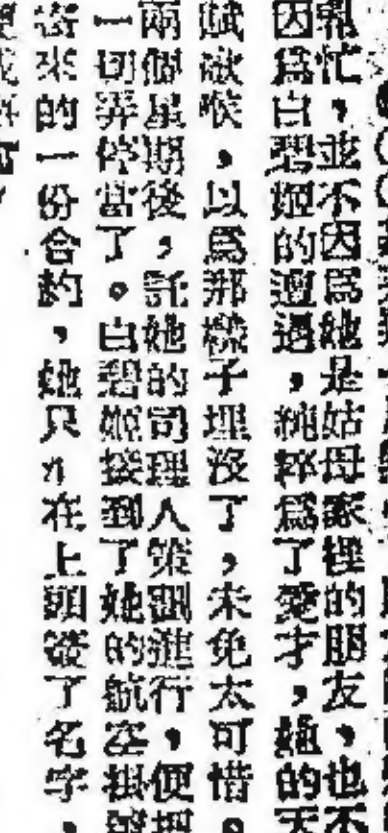 幫忙，並不因爲她是姑母家裡的朋友，也不
因爲白碧姬的遭遇，純粹爲了愛才，她的天
賦歌喉，以爲那樣子埋沒了，未免太可惜。
兩個星期後，託她的司理人策劃進行，便把
一切弄停當了。白碧姬接到了她的航空掛號
寄來的一份合約，她只在上頭簽了名字，